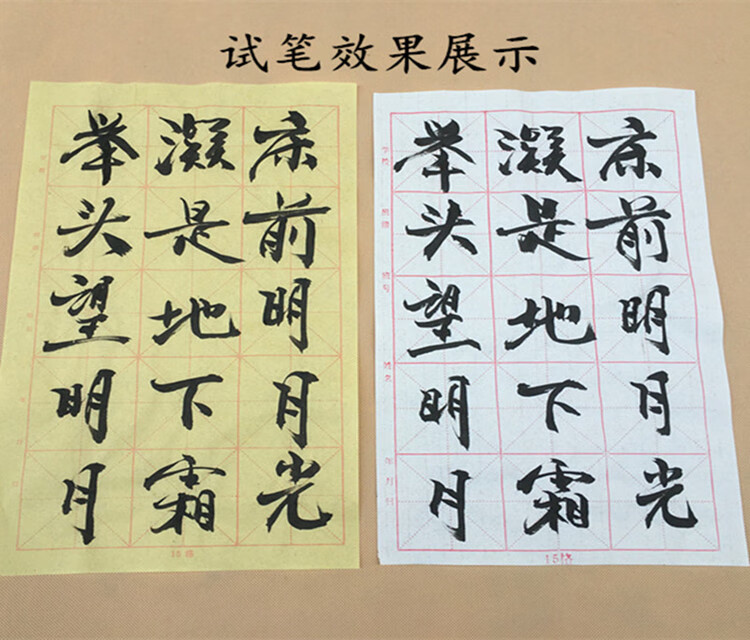 试笔效果展示
床前明月光
凝是地下霜
举头望明月
15格
床前明月光
凝是地下霜
举头望明月
姓名
年月日
15格